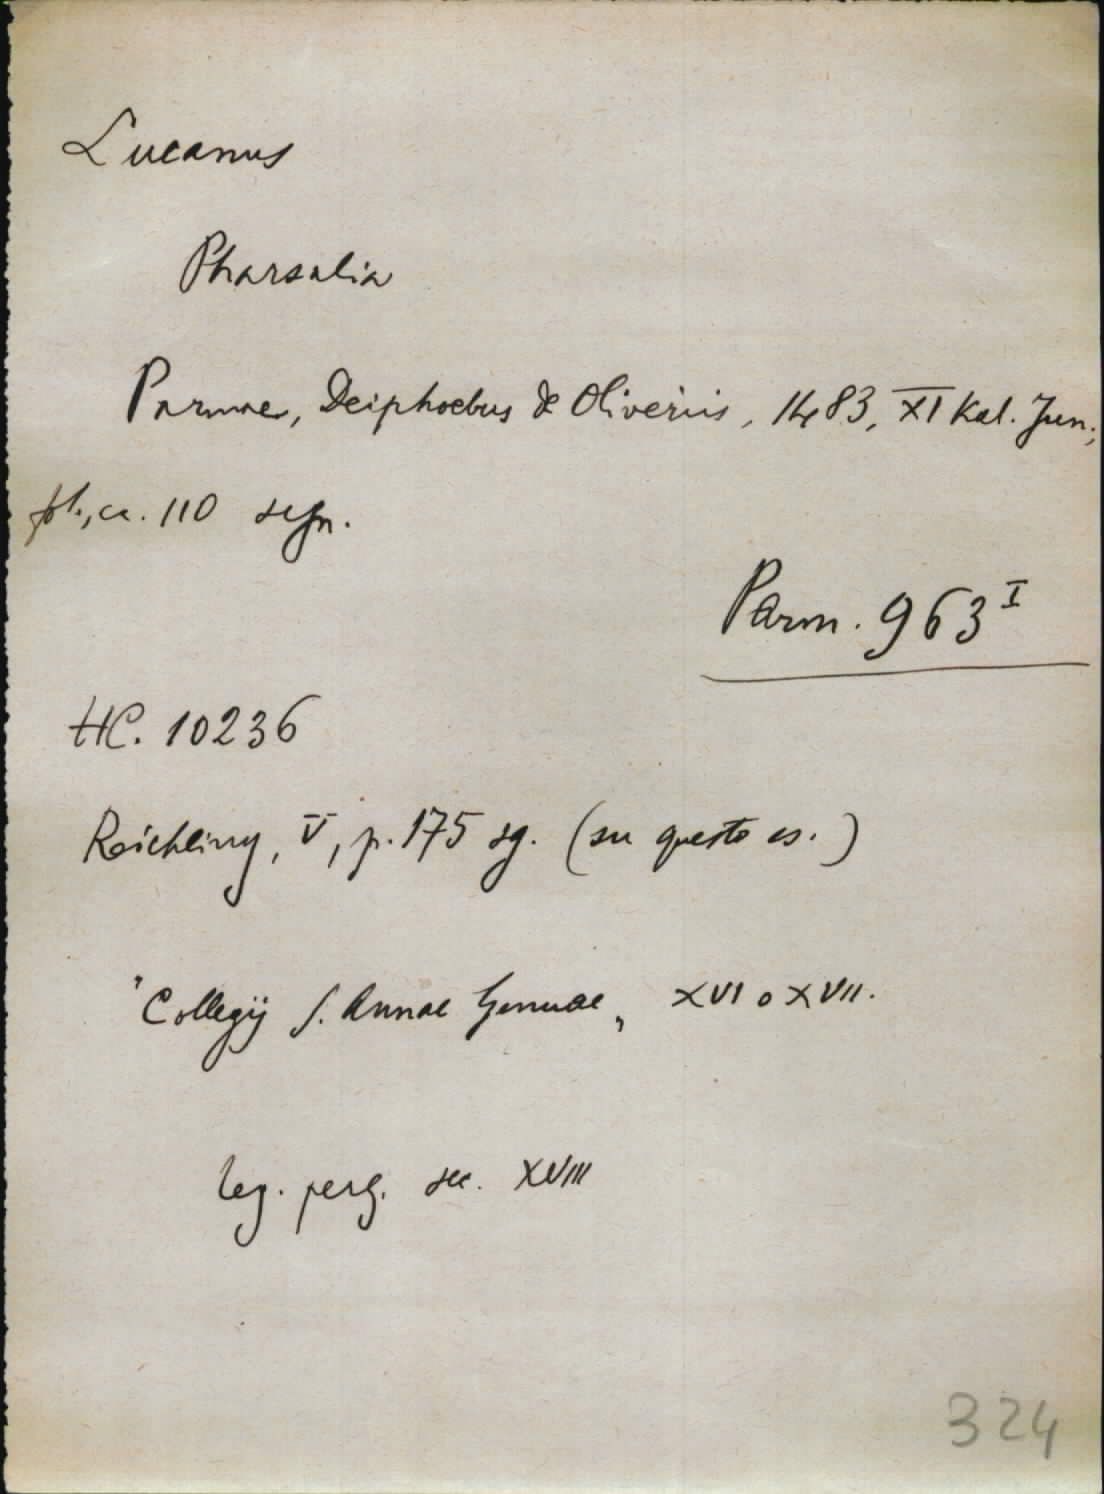 Lucanus
Pharsalia
Parmae, Deiphoebus de Oliveriis, 1483, XI Kal. Jun.,
fol., ca. 110 segn.
Parm. 963 I
HC. 10236
Reichling, V, p. 175 sg. (su questo es.)
"Collegij S. Annae Genuae„ XVI o XVII.
leg. perg. sec. XVIII
324